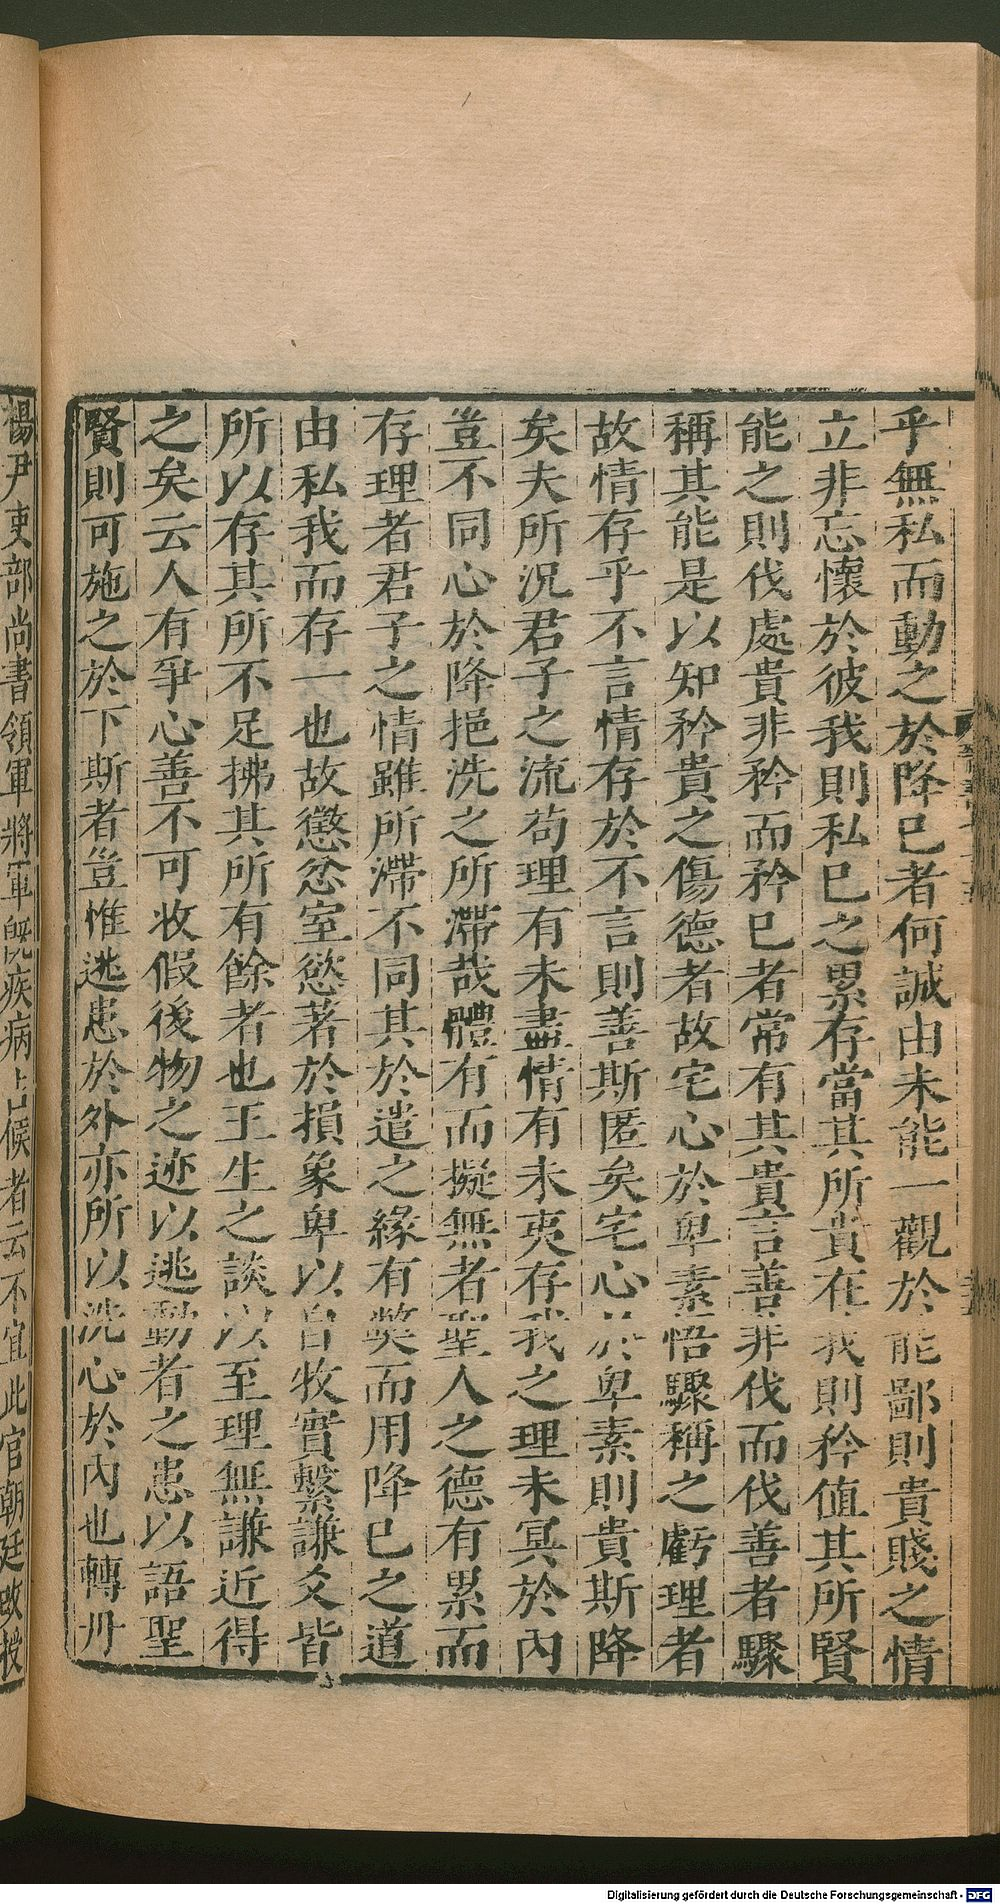 乎無私而動之於降已者何誠由未能一觀於能鄙則貴賤之情
立非忘懷於彼我則私已之累存當其所貴在我則矜值其所賢
能之則伐處貴非矜而矜已者常有其貴言善非伐而伐善者驟
稱其能是以知矜貴之傷德者故宅心於卑素悟驟稱之虧理者
故情存乎不言情存於不言則善斯匿矣宅心於卑素則貴斯降
矣夫所況君子之流苟理有未盡情有未夷存我之理未冥於內
豈不同心於降挹洗之所滯哉體有而擬無者聖人之德有累而
存理者君子之情雖所滯不同其於遣之緣有獘而用降已之道
由私我而存一也故懲忿窒慾著於損象卑以自牧實繫謙爻皆
所以存其所不足拂其所有餘者也王生之談以至理無謙近得
之矣云人有爭心善不可收假後物之迹以逃動者之患以語聖
賢則可施之於下斯者豈惟逃患於外亦所以洗心於內也轉丹
楊尹吏部尚書領軍將軍旣疾病占候者云不宜此官朝廷改授
Digitalisierung gefördert durch die Deutsche Forschungsgemeinschaft - DFG